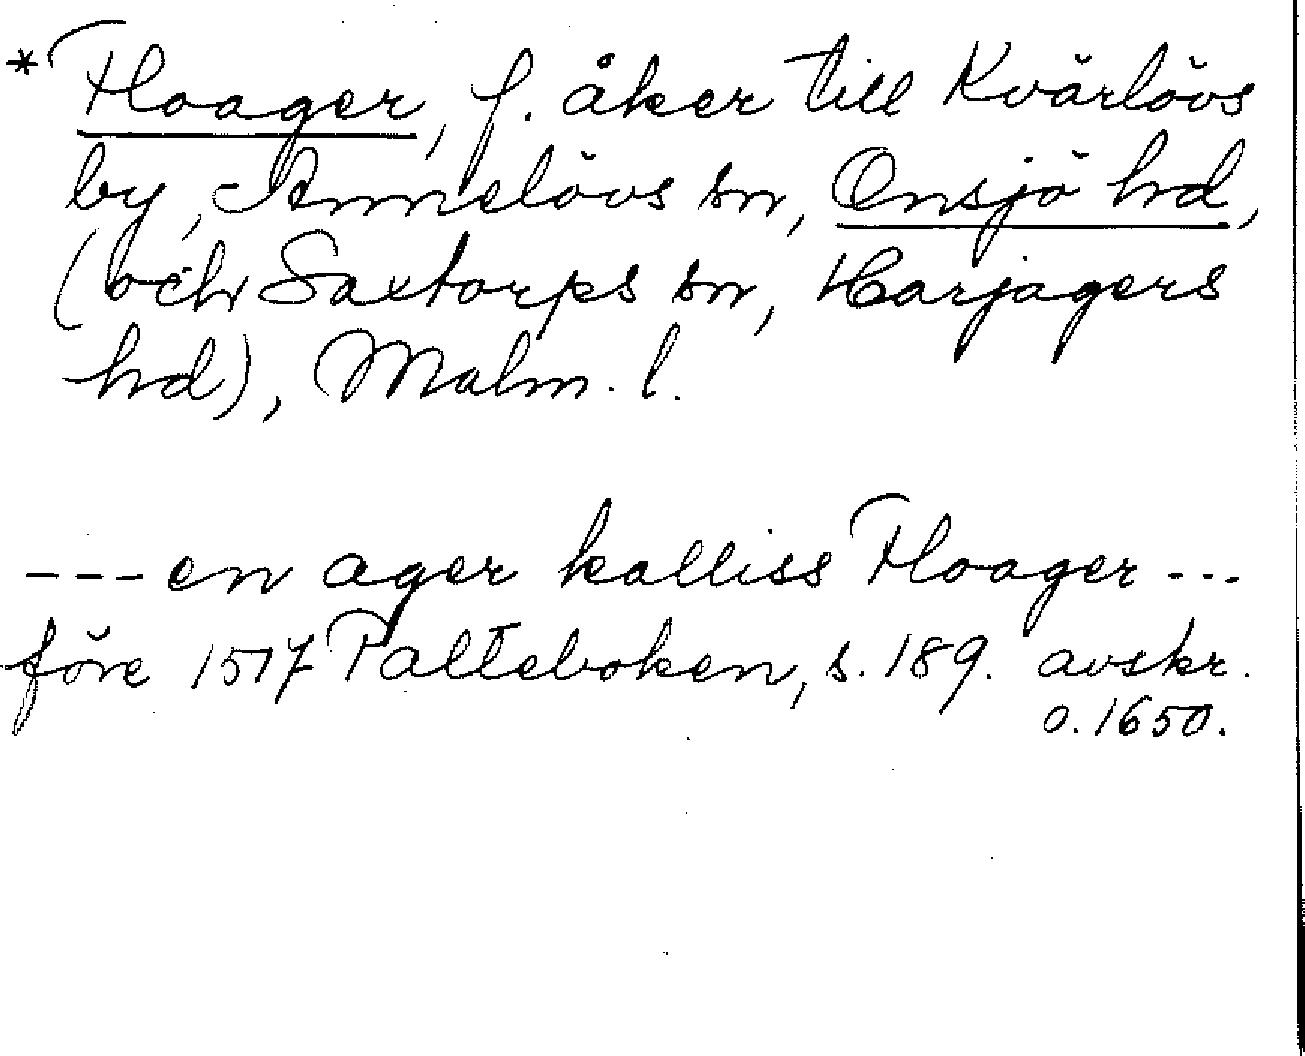 * Floager, f. åker till Kvärlövs
by, Annelövs sn, Onsjö hd,
(och Saxtorps sn, Harjagers
hd), Malm. l.
--- en ager kalliss Floager ---
före 1517 Palteboken, s. 189. avskr.
o. 1650.